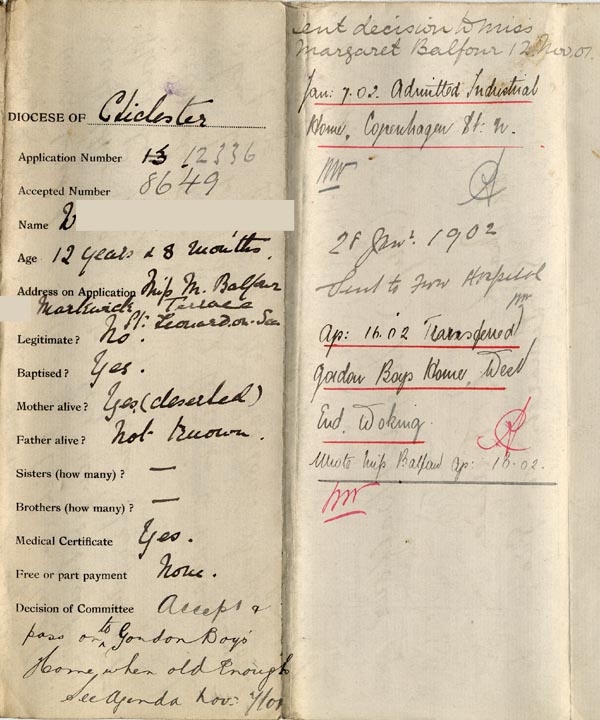 DIOCESE OF Chichester
Application Number 13 12336
Accepted Number 8649
Name W
Age 12 years & 8 months.
Address on Application Miss M. Balfour
Markwick Terrace
St: Leonard-on-Sea
Legitimate? No.
Baptised? Yes.
Mother alive? Yes (deserted)
Father alive? Not known.
Sisters (how many)? —
Brothers (how many)? —
Medical Certificate Yes.
Free or part payment None.
Decision of Committee Accept &
pass on to Gordon Boys'
Home, when old enough
See Agenda Nov: 7/01
ent decision to Miss
Margaret Balfour 12 Nov. 01.
Jan: 7.02. Admitted Industrial
Home, Copenhagen St: N.
28 Jany. 1902
Sent to Fever Hospital
Ap: 16.02 Transferred
Gordon Boys Home, West
End, Woking.
Wrote Miss Balfour Ap: 16.02.